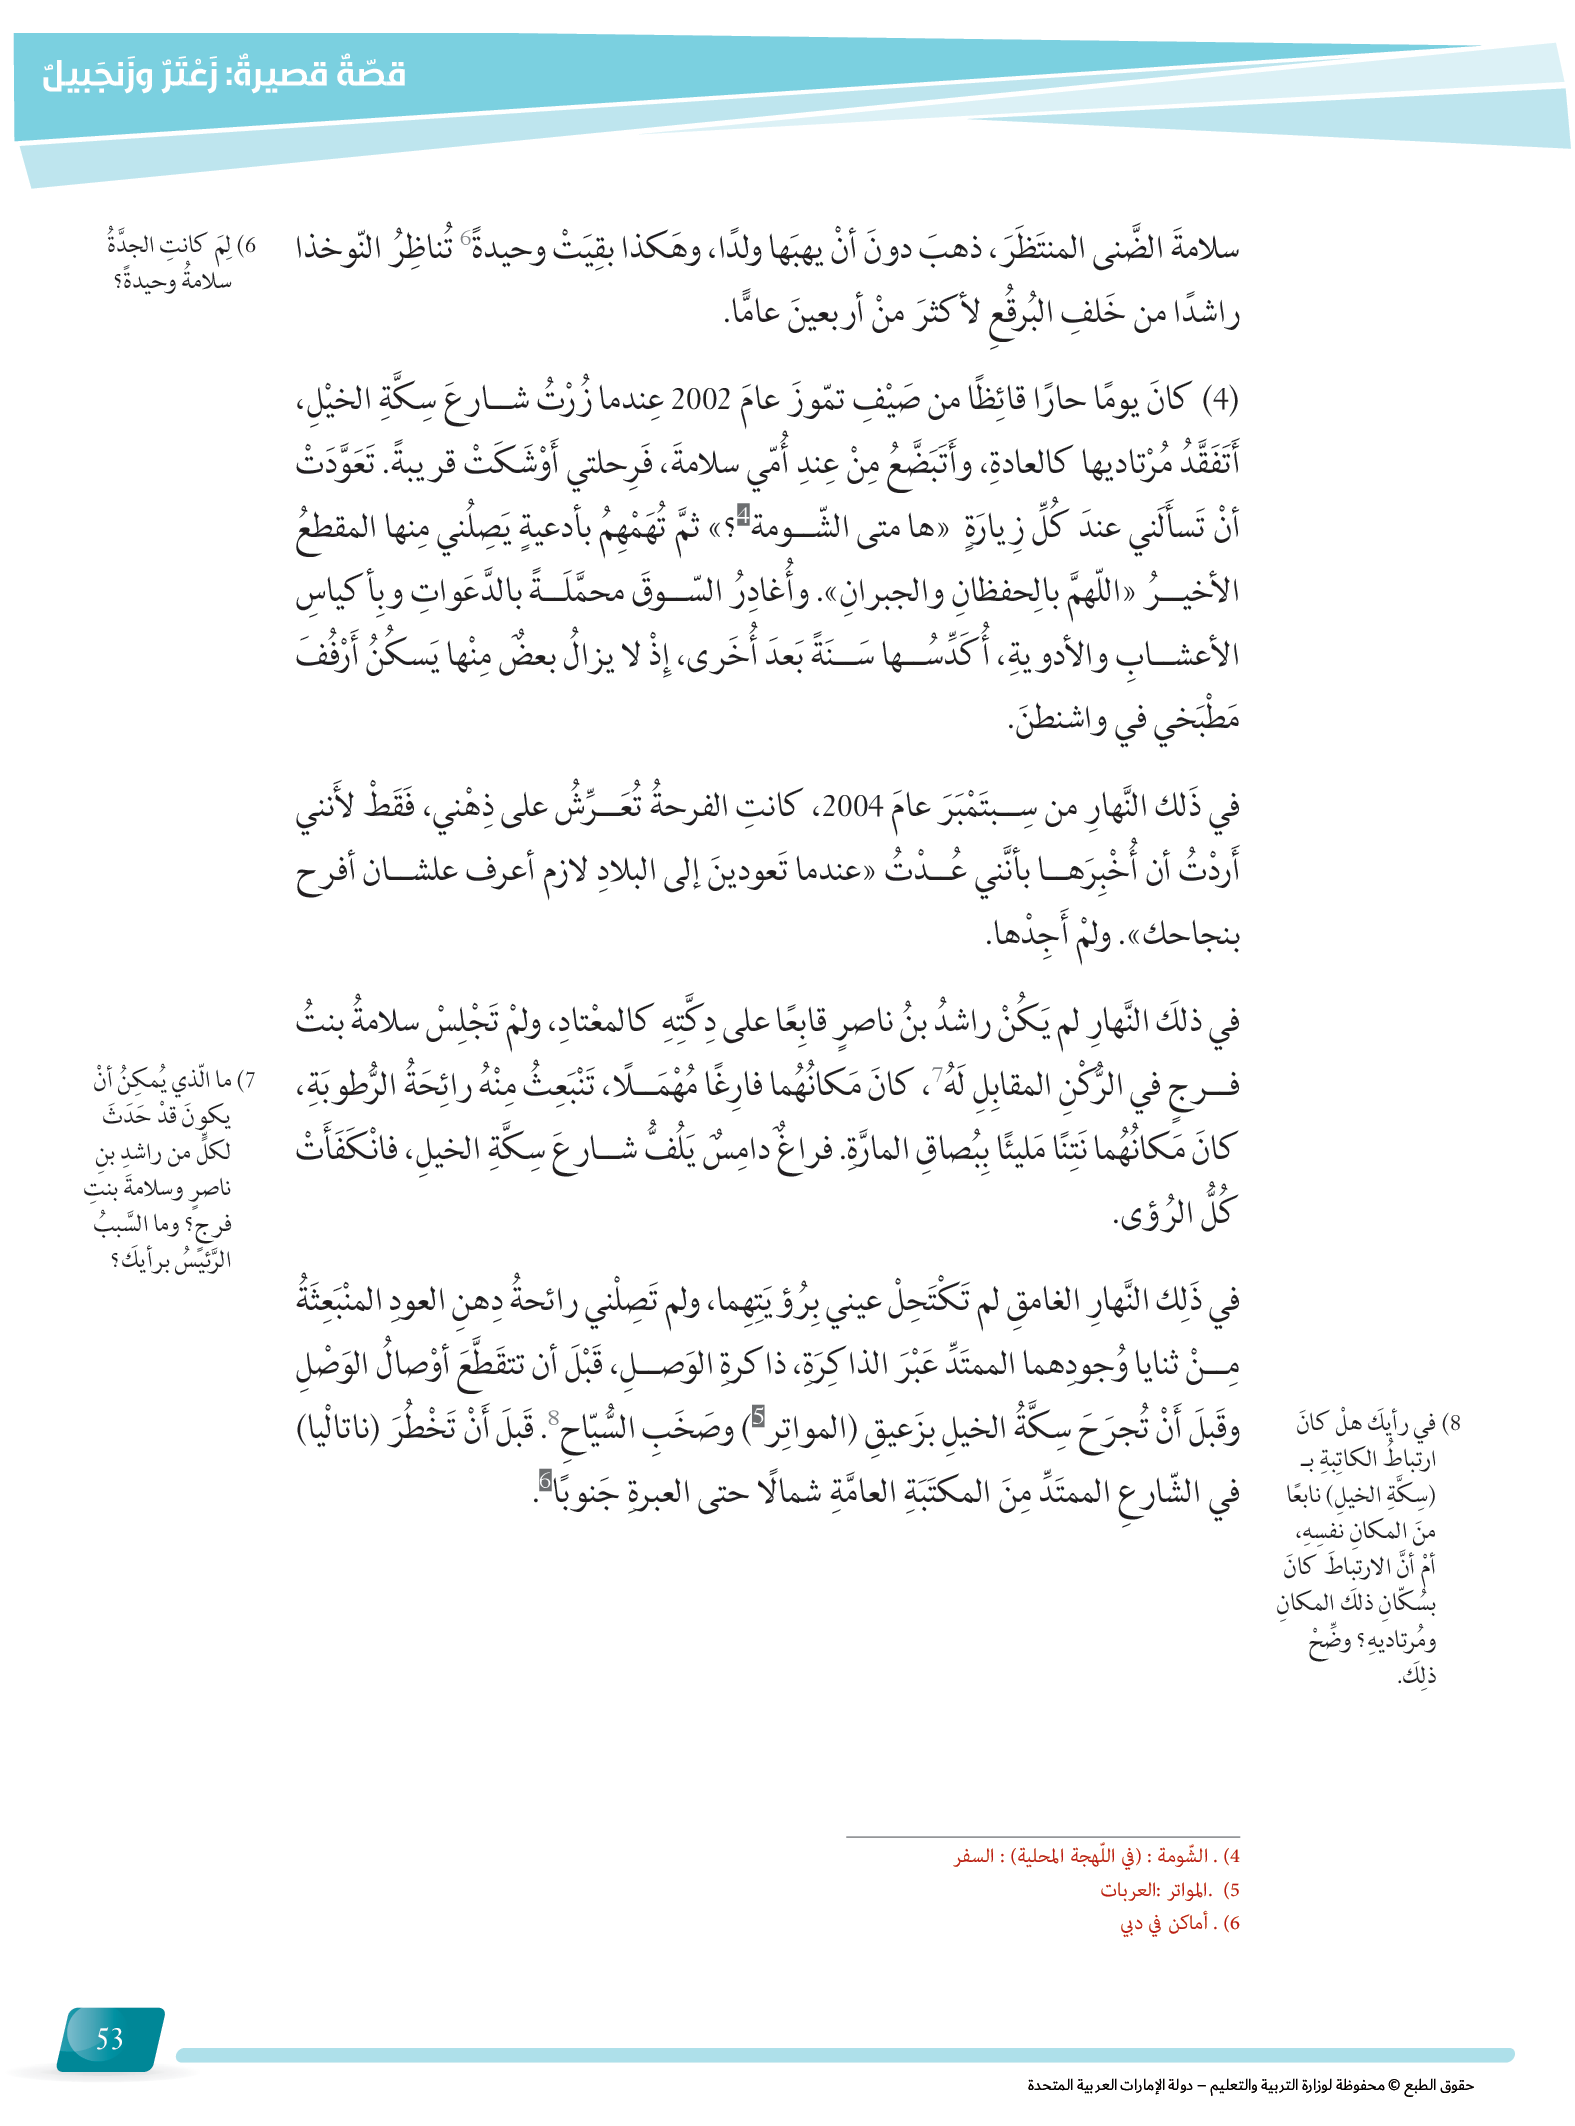 قصّةٌ قصيرةٌ: زَعْتَرٌ وزَنجَبيلٌ
سلامةَ الضَّنى المنتَظَرَ، ذهبَ دونَ أنْ يهبَها ولدًا، وهَكذا بقِيَتْ وحيدةً6 تُناظِرُ النّوخذا
راشدًا من خَلفِ البُرقُعِ لأكثرَ منْ أربعينَ عامًّا.
6) لِمَ كانتِ الجدَّةُ
سلامةُ وحيدةً؟
(4) كانَ يومًا حارًا قائِظًا من صَيْفِ تمّوزَ عامَ 2002 عِندما زُرْتُ شـارعَ سِكَّةِ الخيْلِ،
أَتَفَقَّدُ مُرْتاديها كالعادةِ، وأَتَبَضَّعُ مِنْ عِندِ أُمّي سلامةَ، فَرِحلتي أَوْشَكَتْ قريبةً. تَعَوَّدَتْ
أنْ تَسأَلَني عندَ كُلِّ زِيارَةٍ «ها متى الشّـومة4؟» ثمَّ تُهَمْهِمُ بأدعيةٍ يَصِلُني مِنها المقطعُ
الأخيـرُ «اللّهمَّ بالِحفظانِ والجبرانِ». وأُغادِرُ السّـوقَ محمَّلَـةً بالدَّعَواتِ وبِأكياسِ
الأعشـابِ والأدويةِ، أُكَدِّسُـها سَـنَةً بَعدَ أُخَرى، إِذْ لا يزالُ بعضٌ مِنْها يَسكُنُ أَرْفُفَ
مَطْبَخي في واشنطنَ.
في ذَلك النَّهارِ من سِـبتَمْبَرَ عامَ 2004، كانتِ الفرحةُ تُعَـرِّشُ على ذِهْني، فَقَطْ لأَنني
أَردْتُ أن أُخْبِرَهـا بأنَّني عُـدْتُ «عندما تَعودينَ إلى البلادِ لازم أعرف علشـان أفرح
بنجاحك». ولمْ أَجِدْها.
في ذلكَ النَّهارِ لم يَكُنْ راشدُ بنُ ناصرٍ قابِعًا على دِكَّتِهِ كالمعْتادِ، ولمْ تَجْلِسْ سلامةُ بنتُ
فـرجٍ في الرُّكْنِ المقابِلِ لَهُ7، كانَ مَكانُهُما فارِغًا مُهْمَـلًا، تَنْبَعِثُ مِنْهُ رائِحَةُ الرُّطوبَةِ،
كانَ مَكانُهُما نَتِنًا مَليئًا بِبُصاقِ المارَّةِ. فراغٌ دامِسٌ يَلُفُّ شـارعَ سِكَّةِ الخيلِ، فانْكَفَأَتْ
كُلُّ الرُؤى.
7) ما الّذي يُمكِنُ أنْ
يكونَ قدْ حَدَثَ
لكلٍّ من راشدِ بنِ
ناصرٍ وسلامةَ بنتِ
فرجٍ؟ وما السَّببُ
الرَّئيسُ برأيكَ؟
في ذَلِك النَّهارِ الغامقِ لم تَكْتَحِلْ عيني بِرُؤيَتِهِما، ولم تَصِلْني رائحةُ دِهنِ العودِ المنْبَعِثَةُ
مِـنْ ثنايا وُجودِهما الممتَدِّ عَبْرَ الذاكِرَةِ، ذاكرةِ الوَصـلِ، قَبْلَ أن تتقَطَّعَ أوْصالُ الوَصْلِ
وقَبلَ أَنْ تُجرَحَ سِكَّةُ الخيلِ بزَعيقِ (المواتِر5) وصَخَبِ السُّيّاحِ8. قَبلَ أَنْ تَخْطُرَ (ناتالْيا)
في الشّارعِ الممتَدِّ مِنَ المكتَبَةِ العامَّةِ شمالًا حتى العبرةِ جَنوبًا6.
8) في رأيكَ هلْ كانَ
ارتباطُ الكاتِبةِ بـ
(سِكَّةِ الخيلِ) نابعًا
منَ المكانِ نفسِهِ،
أمْ أنَّ الارتباطَ كانَ
بسُكّانِ ذلكَ المكانِ
ومُرتاديهِ؟ وضِّحْ
ذلِكَ.
4) . الشّومة : (في اللّهجة المحلية) : السفر
5) .المواتر :العربات
6) . أماكن في دبي
53
حقوق الطبع © محفوظة لوزارة التربية والتعليم – دولة الإمارات العربية المتحدة